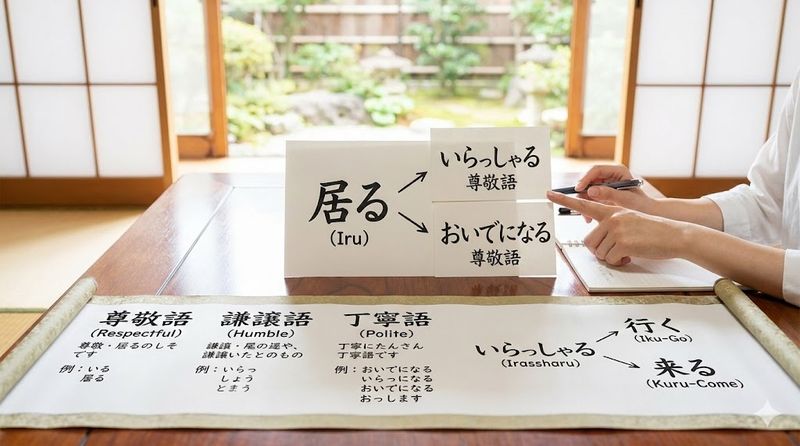 居る
(Iru)
いらっしゃる
尊敬語
おいでになる
尊敬語
尊敬語
(Respectful)
尊敬・居るのしそ
です
例：いる
居る
謙譲語
(Humble)
謙譲・尾の遥や、
謙譲いたとのもの
例：いらっ
しょう
とまう
丁寧語
(Polite)
丁寧にたんさん
丁寧語です
例：おいでになる
いらっになる
おいでになる
おっします
いらっしゃる
(Irassharu)
行く
(Iku-Go)
来る
(Kuru-Come)